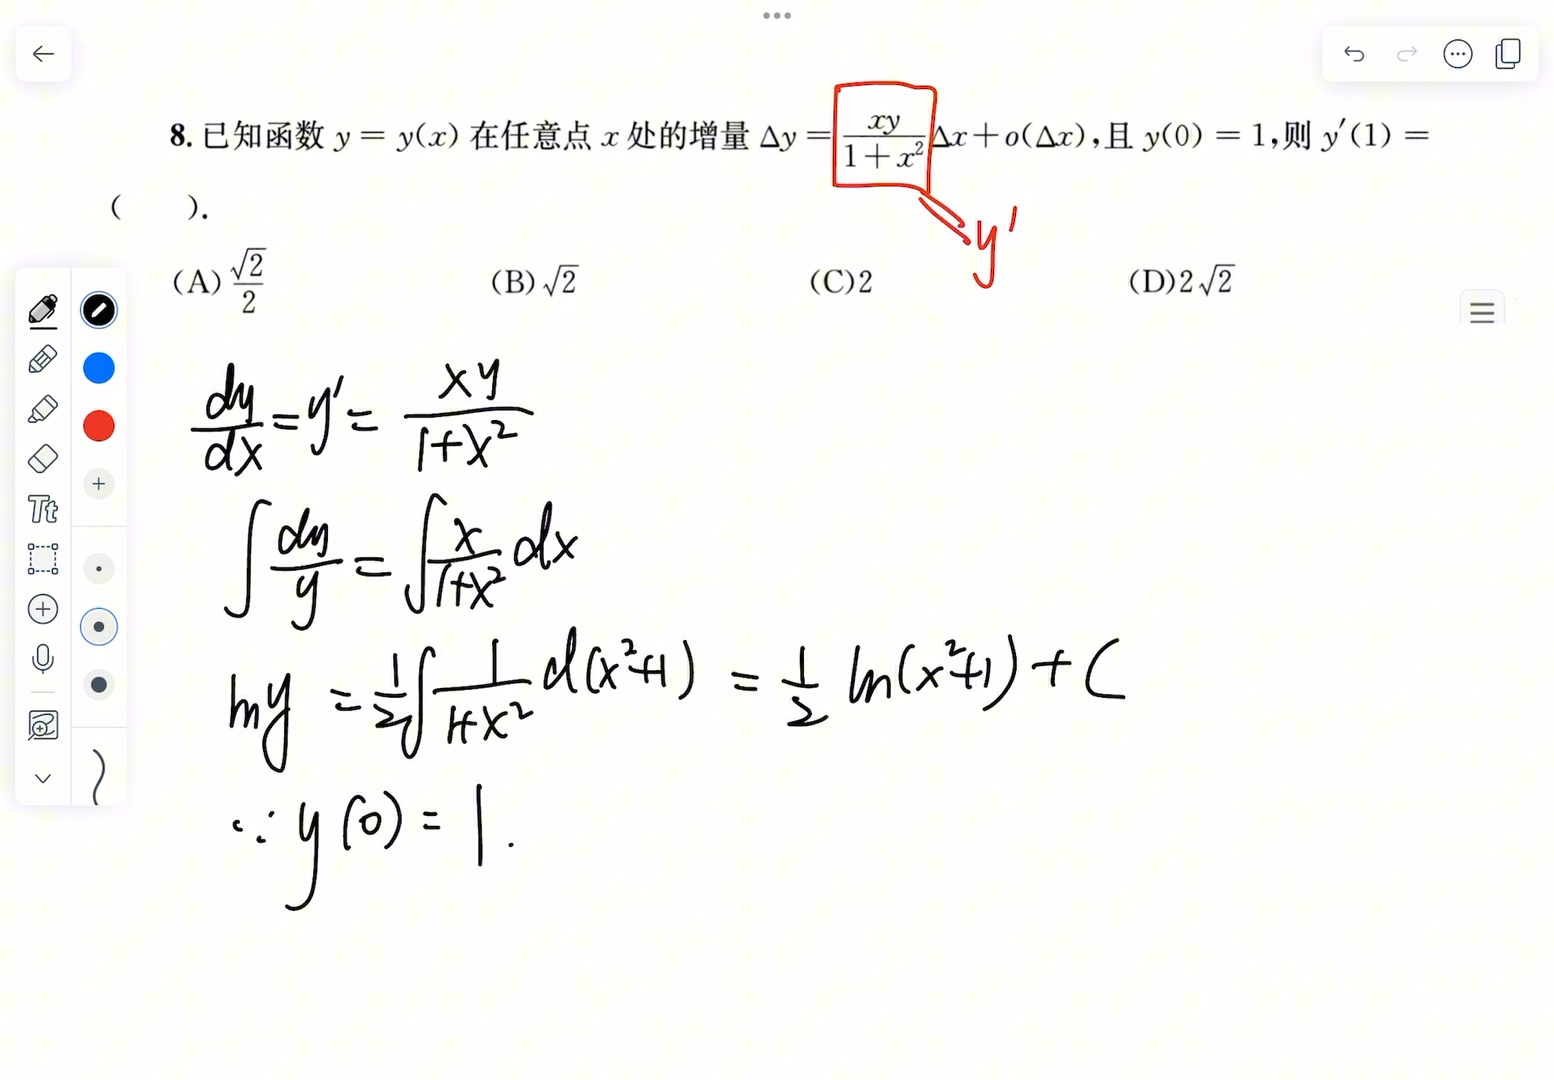 8. 已知函数 y = y(x) 在任意点 x 处的增量 Δy = xy/(1+x²) Δx + o(Δx), 且 y(0) = 1, 则 y′(1) =
( ).
y′
(A) √2/2 (B) √2 (C) 2 (D) 2√2
dy/dx = y′ = xy/(1+x²)
∫ dy/y = ∫ x/(1+x²) dx
lny = 1/2 ∫ 1/(1+x²) d(x²+1) = 1/2 ln(x²+1) + C
∵ y(0) = 1.
Tt